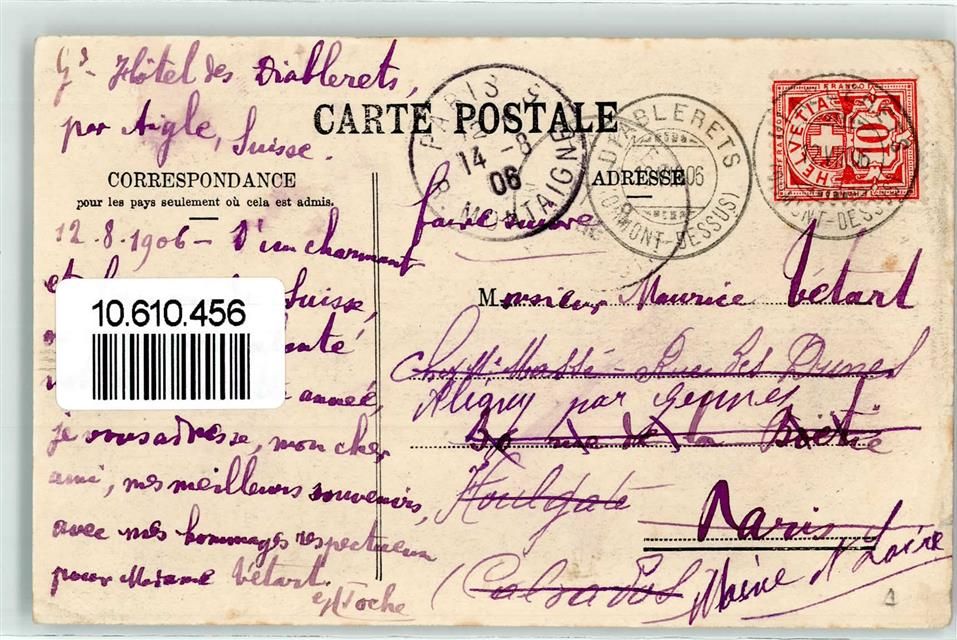 Gd Hôtel des Diablerets,
par Aigle, Suisse.
CARTE POSTALE
CORRESPONDANCE
pour les pays seulement où cela est admis.
ADRESSE
12.8.1906 - D'un charmant
et
Suisse,
10.610.456
année,
je vous adresse, mon cher
ami, mes meilleurs souvenirs,
avec mes hommages respectueux
pour Madame Vétart.
faire suivre
Monsieur Maurice Vétart
Chez Mr Massé - Rue des Dunes
par Gennes
rue de la Boëtie
Houlgate
Paris
(Calvados)
Maine & Loire
PARIS
14 - 8
06
MONTAIGNE
DIABLERETS
06
(ORMONT-DESSUS)
FRANCO
HELVETIA
10